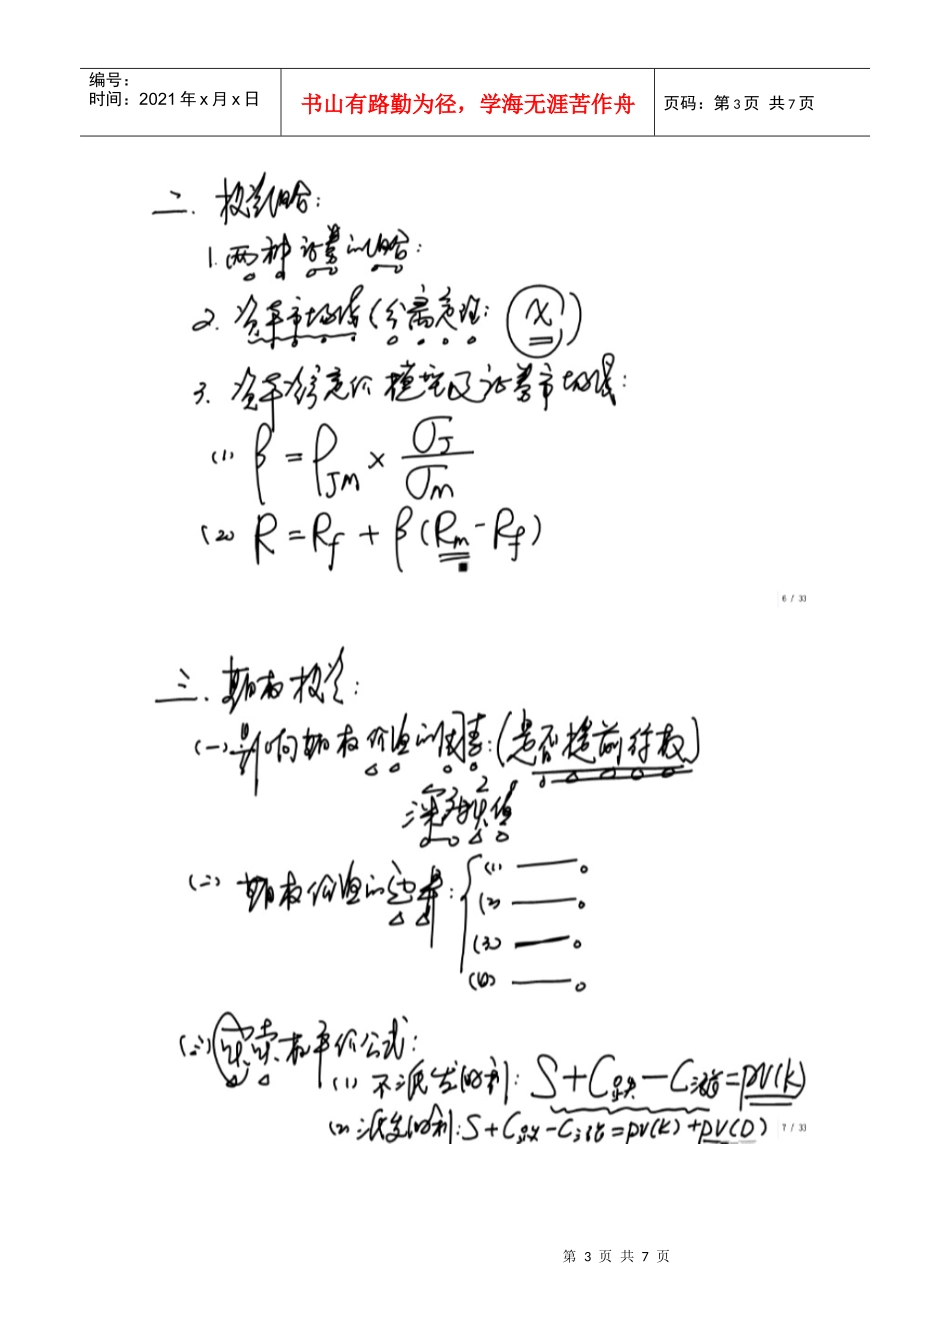 编号：
时间：2021年x月x日
书山有路勤为径，学海无涯苦作舟
页码：第3页 共7页
二.投资组合：
1.两种证券的组合：
2.资本市场线（分离定理：x）
3.资本资产定价模型及证券市场线：
(1) β=ρJM×σJ/σM
(2) R=Rf+β(Rm-Rf)
6 / 33
三.期权投资：
(一)影响期权价值的因素：(是否提前行权)
(二)期权价值的 ：
(1) ——。
(2) ——。
(3) ——。
(四) ——。
(三) 权平价公式：
(1)不派发 利：S+C -C =PV(K)
(2)派发 利：S+C -C =PV(K)+PV(D)
7 / 33
第 3 页 共 7 页